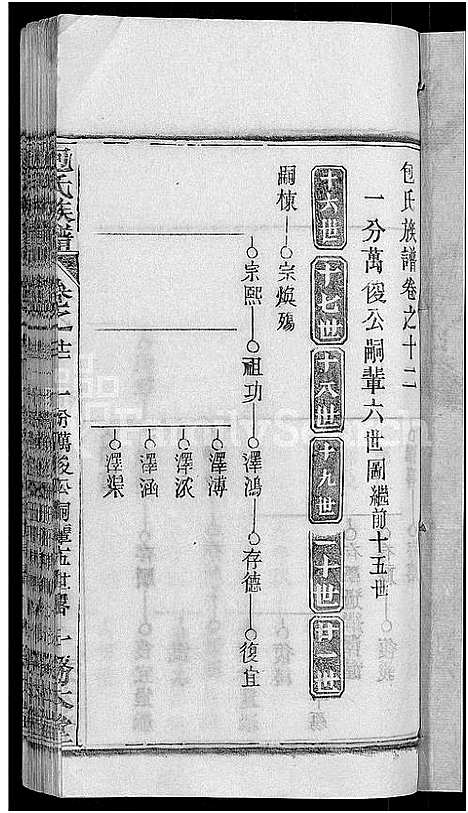 包氏族譜卷之十二
一分萬俊公嗣輩六世圖繼前十五世
十六世 十七世 十八世 十九世 二十世 廿一世
嗣棟 宗煥殤
宗熙 祖功 澤鴻 存德 復宜
澤溥
澤浓
澤涵
澤渠
包氏族譜 卷之十二 一分萬俊公嗣輩五世
FamilySearch